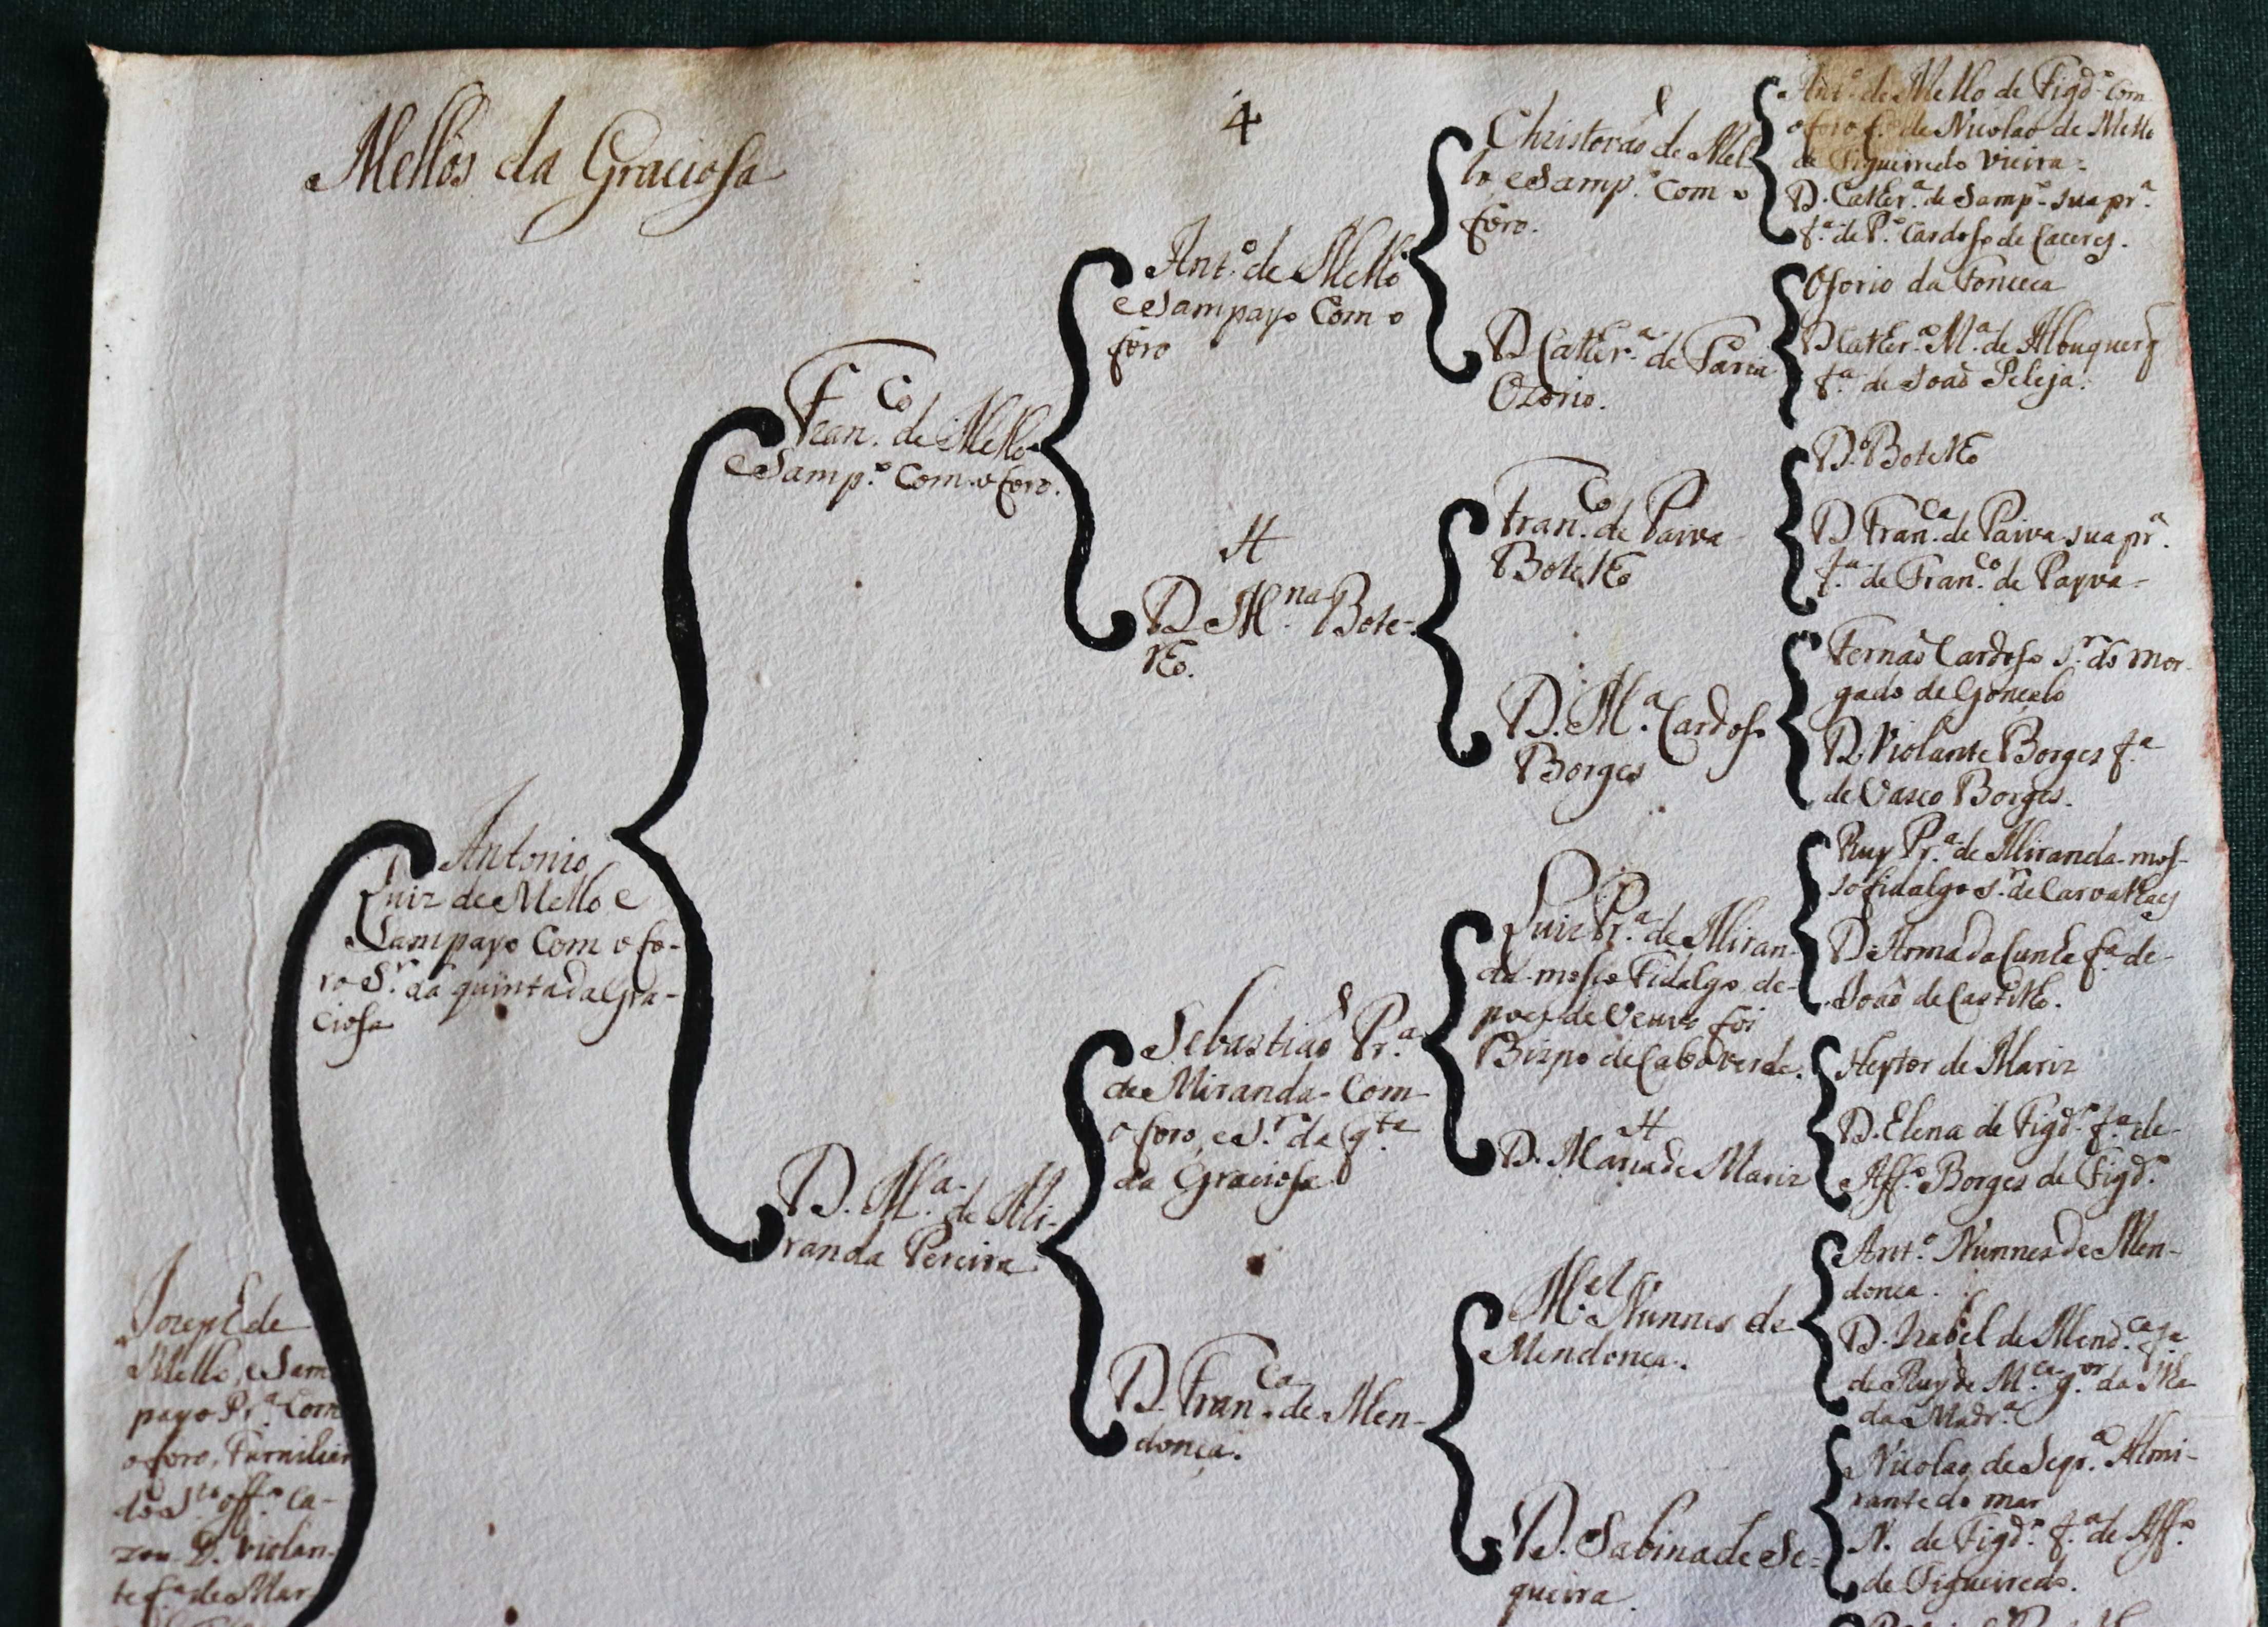 Mellos da Graciosa
4
Joseph de
Mello, e Sam
payo Pr.ª Com
o foro, Familiar
do S.to off.º Ca-
zou D. Violan-
te f.ª de Mar
Antonio
Luiz de Mello e
Sampayo Com o fo-
ro S.r da quinta da Gra-
ciosa
Fran.co de Mello
e Samp.º Com o foro.
D. M.a de Mi-
randa Pereira
Ant.º de Mello
e Sampayo Com o
foro
H
D. M.na Bote-
lho.
Sebastiaõ Pr.ª
de Miranda Com
o foro, e S.r da q.ta
da Graciosa
D. Fran.ca de Men-
donça.
Christovaõ de Mel-
lo e Samp.º Com o
foro.
D. Cather.ª de Faria
Ozorio.
Fran.co de Paiva
Botelho
D. M.ª Cardoso
Borges
Luiz Pr.ª de Miran-
da mosso Fidalgo, de-
poes de Veuvo foi
Bizpo de Cabo verde.
H
D. Maria de Mariz
M.el Nunnes de
Mendonça.
D. Sabina de Se-
queira.
Ant.º de Mello de Figd.º Com
o foro f.º de Nicolao de Mello
de Figueiredo Vieira
D. Cather.ª de Samp.º sua pr.ª
f.ª de P.º Cardoso de Caceres.
Osorio da Fonceca
D. Cather.ª M.ª de Albuquerq
f.ª de Joaõ Peleja.
D.º Botelho
D. Fran.ca de Paiva sua pr.ª
f.ª de Fran.co de Payva
Fernaõ Cardoso S.r do mor-
gado de Gonçalo
D. Violante Borges f.ª
de Vasco Borges.
Ruy Pr.ª de Miranda mos-
so fidalgo S.r de Carvalhaes
D. Anna da Cunha f.ª de
Joaõ de Castilho.
Heytor de Mariz
D. Elena de Figd.º f.ª de
Aff.º Borges de Figd.º
Ant.º Nunnes de Men-
donca.
D. Izabel de Mend.ca f.ª
de Ruy de M.ca g.or da Ilha
da Madr.ª
Nicolao de Seqr.ª Almi-
rante do mar
N. de Figd.º f.ª de Aff.º
de Figueiredo.